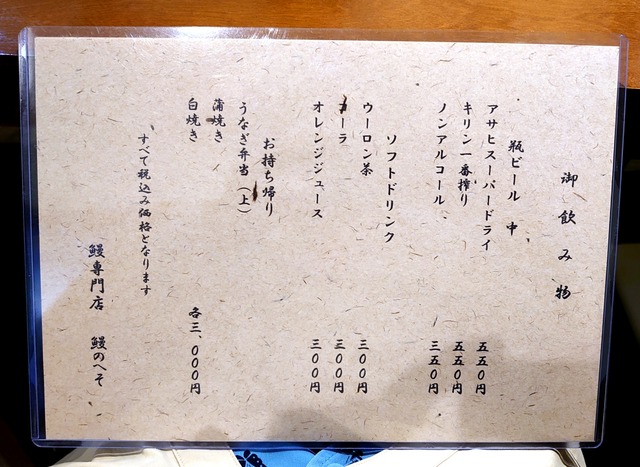 御飲み物
瓶ビール 中
アサヒスーパードライ 五五〇円
キリン一番搾り 五五〇円
ノンアルコール 三五〇円
ソフトドリンク
ウーロン茶 三〇〇円
コーラ 三〇〇円
オレンジジュース 三〇〇円
お持ち帰り
うなぎ弁当（上）
蒲焼き
白焼き 各三、〇〇〇円
すべて税込み価格となります
鰻専門店 鰻のへそ